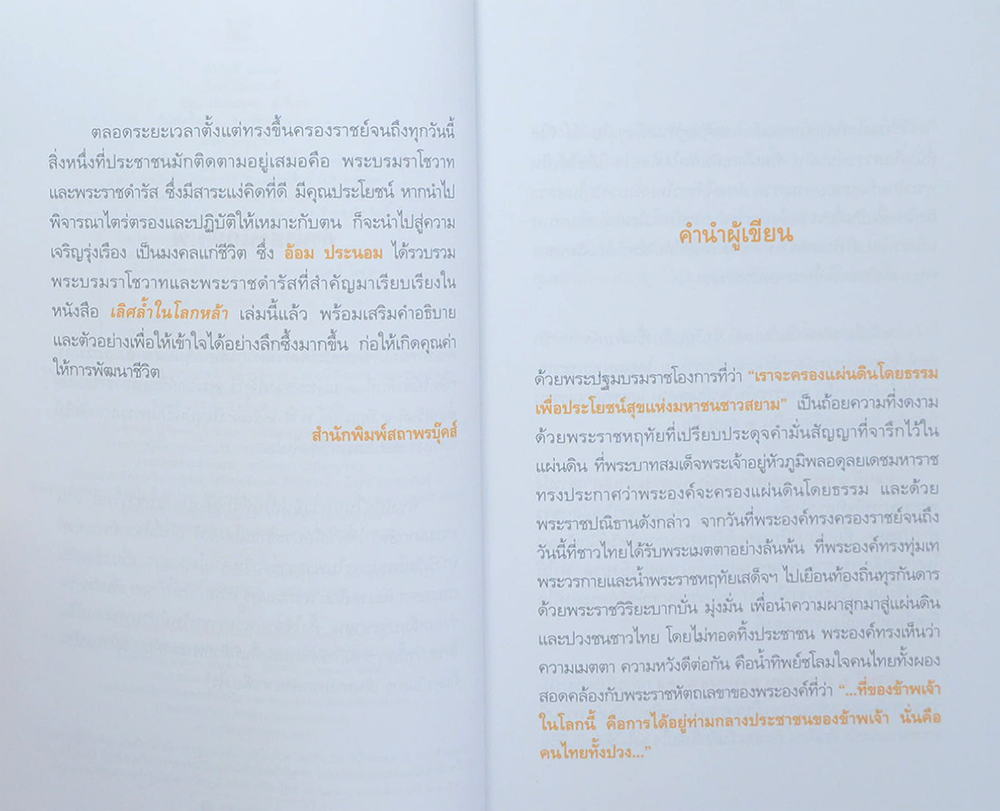 ตลอดระยะเวลาตั้งแต่ทรงขึ้นครองราชย์จนถึงทุกวันนี้
สิ่งหนึ่งที่ประชาชนมักติดตามอยู่เสมอคือ พระบรมราโชวาท
และพระราชดำรัส ซึ่งมีสาระแง่คิดที่ดี มีคุณประโยชน์ หากนำไป
พิจารณาไตร่ตรองและปฏิบัติให้เหมาะกับตน ก็จะนำไปสู่ความ
เจริญรุ่งเรือง เป็นมงคลแก่ชีวิต ซึ่ง อ้อม ประนอม ได้รวบรวม
พระบรมราโชวาทและพระราชดำรัสที่สำคัญมาเรียบเรียงใน
หนังสือ เลิศล้ำในโลกหล้า เล่มนี้แล้ว พร้อมเสริมคำอธิบาย
และตัวอย่างเพื่อให้เข้าใจได้อย่างลึกซึ้งมากขึ้น ก่อให้เกิดคุณค่า
ให้การพัฒนาชีวิต
สำนักพิมพ์สถาพรบุ๊คส์
คำนำผู้เขียน
ด้วยพระปฐมบรมราชโองการที่ว่า “เราจะครองแผ่นดินโดยธรรม
เพื่อประโยชน์สุขแห่งมหาชนชาวสยาม” เป็นถ้อยความที่งดงาม
ด้วยพระราชหฤทัยที่เปรียบประดุจคำมั่นสัญญาที่จารึกไว้ใน
แผ่นดิน ที่พระบาทสมเด็จพระเจ้าอยู่หัวภูมิพลอดุลยเดชมหาราช
ทรงประกาศว่าพระองค์จะครองแผ่นดินโดยธรรม และด้วย
พระราชปณิธานดังกล่าว จากวันที่พระองค์ทรงครองราชย์จนถึง
วันนี้ที่ชาวไทยได้รับพระเมตตาอย่างล้นพ้น ที่พระองค์ทรงทุ่มเท
พระวรกายและน้ำพระราชหฤทัยเสด็จฯ ไปเยือนท้องถิ่นทุรกันดาร
ด้วยพระราชวิริยะบากบั่น มุ่งมั่น เพื่อนำความผาสุกมาสู่แผ่นดิน
และปวงชนชาวไทย โดยไม่ทอดทิ้งประชาชน พระองค์ทรงเห็นว่า
ความเมตตา ความหวังดีต่อกัน คือน้ำทิพย์ชโลมใจคนไทยทั้งผอง
สอดคล้องกับพระราชหัตถเลขาของพระองค์ที่ว่า “...ที่ของข้าพเจ้า
ในโลกนี้ คือการได้อยู่ท่ามกลางประชาชนของข้าพเจ้า นั่นคือ
คนไทยทั้งปวง...”